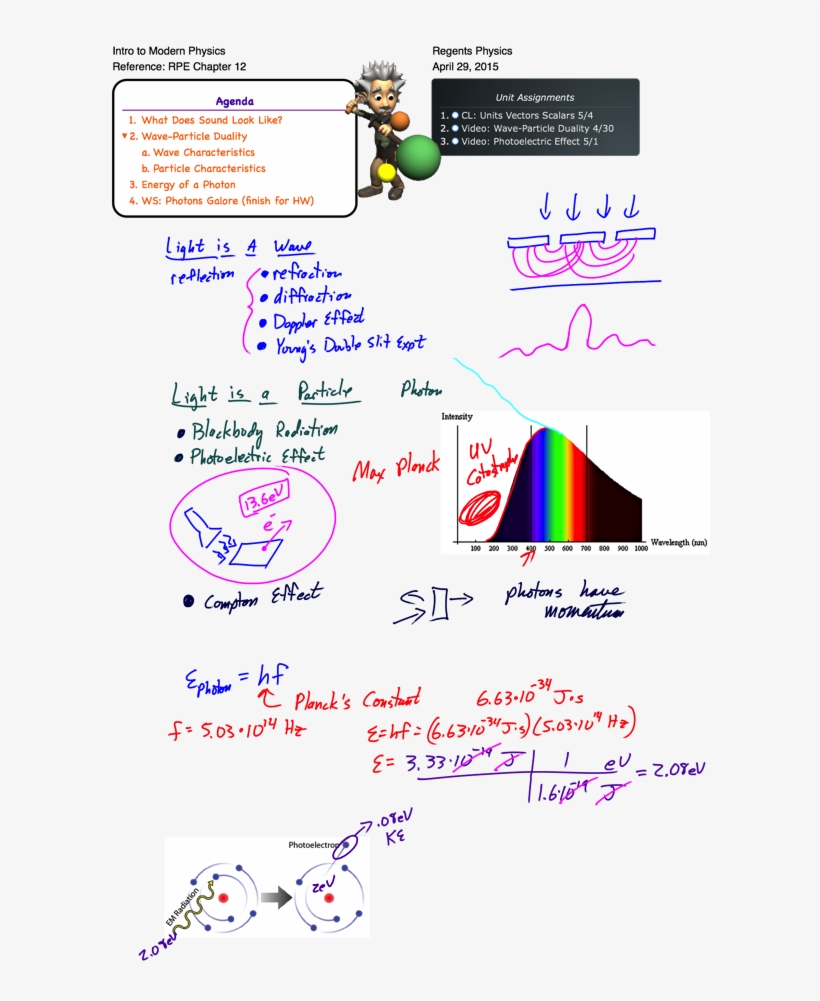 Intro to Modern Physics
Reference: RPE Chapter 12
Regents Physics
April 29, 2015
Agenda
1. What Does Sound Look Like?
▼2. Wave-Particle Duality
a. Wave Characteristics
b. Particle Characteristics
3. Energy of a Photon
4. WS: Photons Galore (finish for HW)
Unit Assignments
1. CL: Units Vectors Scalars 5/4
2. Video: Wave-Particle Duality 4/30
3. Video: Photoelectric Effect 5/1
Light is A Wave
reflection
• refraction
• diffraction
• Doppler Effect
• Young's Double Slit Expt
Light is a Particle Photon
• Blackbody Radiation
• Photoelectric Effect
Max Planck
13.6eV
e⁻
Intensity
UV
Catastrophe
100 200 300 400 500 600 700 800 900 1000
Wavelength (nm)
• Compton Effect
photons have
momentum
ε Photon = hf
Planck's Constant 6.63·10⁻³⁴ J·s
f = 5.03·10¹⁴ Hz
ε=hf=(6.63·10⁻³⁴J·s)(5.03·10¹⁴ Hz)
ε= 3.33·10⁻¹⁹ J | 1 eV = 2.08eV
1.6·10⁻¹⁹ J
.08eV
KE
Photoelectron
2eV
EM Radiation
2.08eV